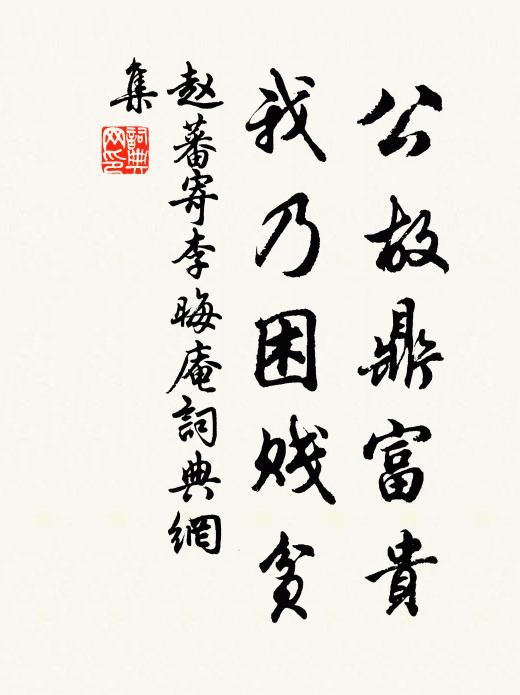 公故鼎富貴
我乃困贱貧
赵蕃寄李晦庵詞典網
集
詞典网印